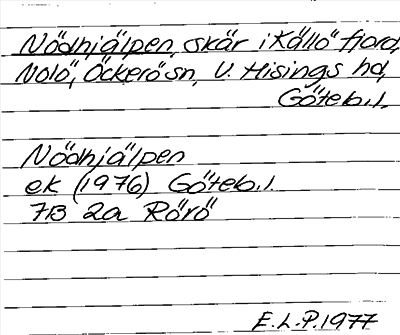 Nödhjälpen, skär i Källö fjord,
Nolö, Öckerö sn, V. Hisings hd,
Göteb. l.
Nödhjälpen
ek (1976) Göteb. l.
7B 2a Rörö
E.L.P. 1977